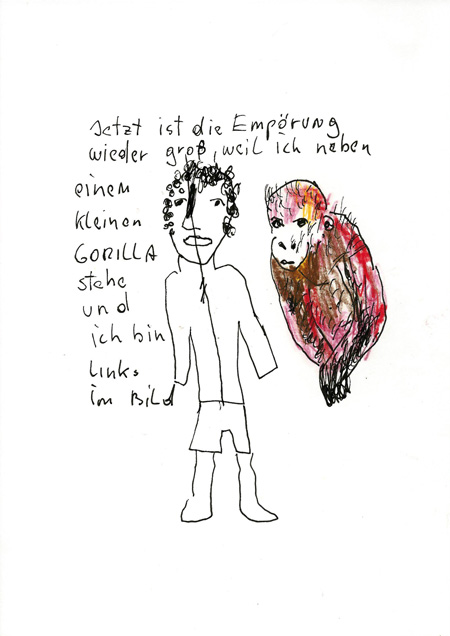 Jetzt ist die Empörung
wieder groß, weil ich neben
einem
kleinen
GORILLA
stehe
und
ich bin
links
im Bild